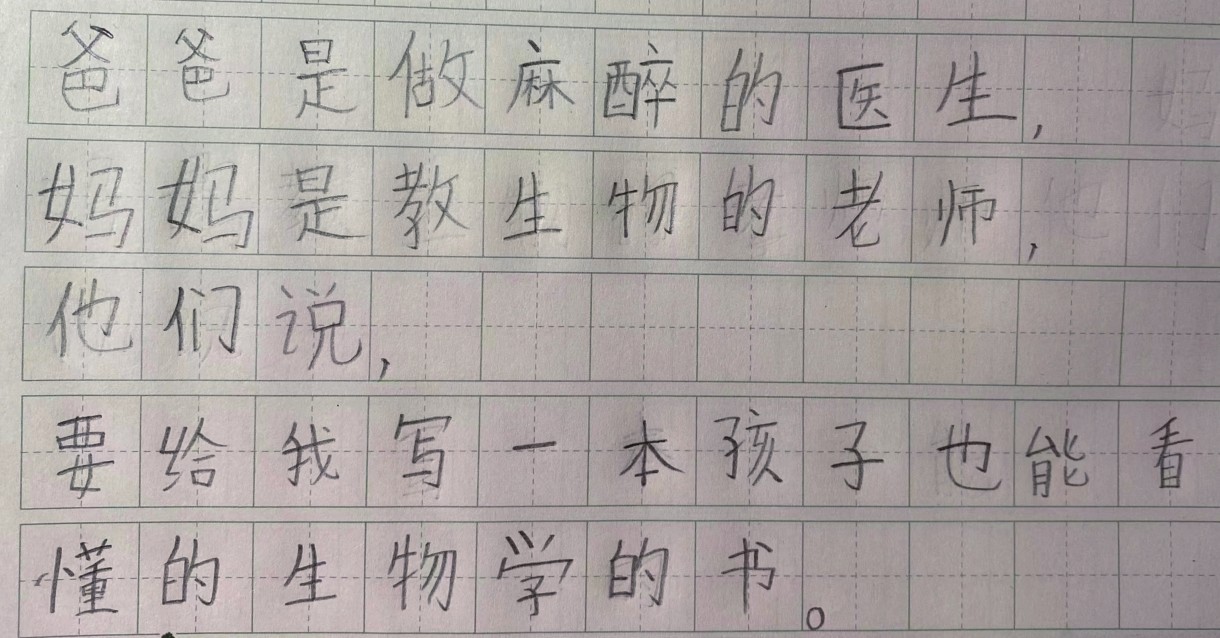 爸爸是做麻醉的医生,
妈妈是教生物的老师,
他们说,
要给我写一本孩子也能看
懂的生物学的书。